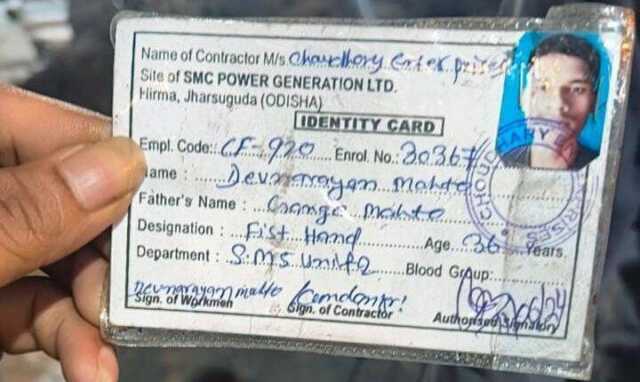 Name of Contractor M/s Chowdhory Enterprises
Site of SMC POWER GENERATION LTD.
Hirma, Jharsuguda (ODISHA)
IDENTITY CARD
Empl. Code: CF-920 Enrol. No.: 30367
Name : Devnarayan Mahto
Father's Name : Ganga Mahto
Designation : Fist Hand Age 36 Years
Department : S.M.S Unit-2 Blood Group:
Devnarayan mahto
Sign. of Workmen Sign. of Contractor Authorised Signatory